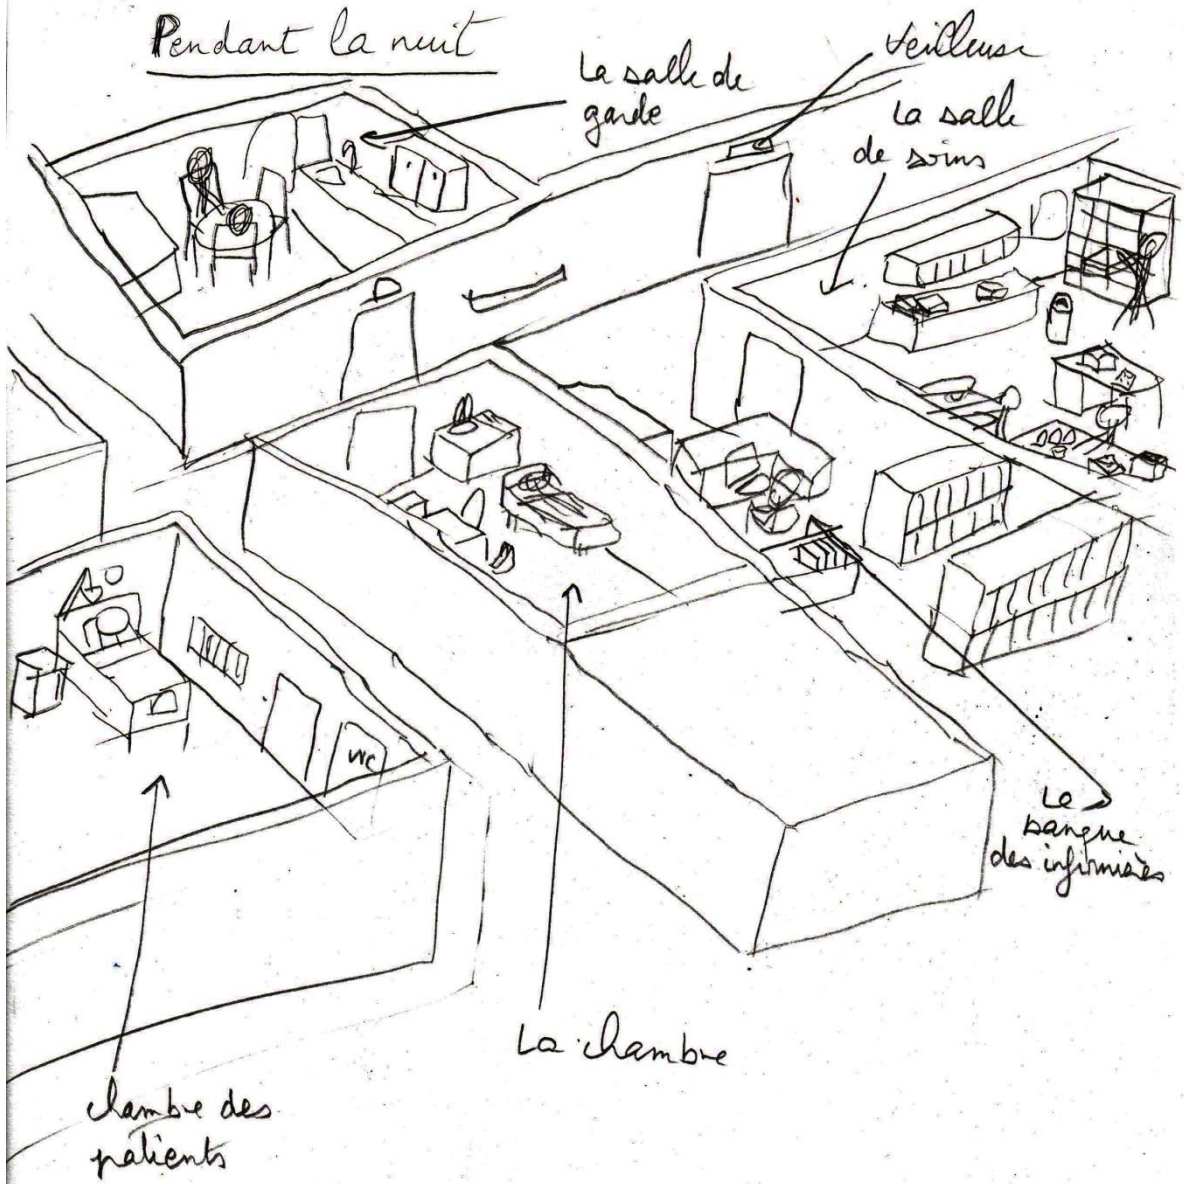 Pendant la nuit
La salle de
garde
Veilleuse
La salle
de soins
WC
La
banque
des infirmières
La chambre
Chambre des
patients